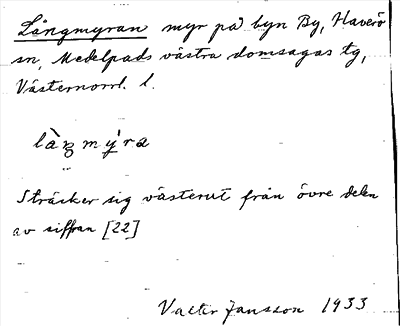 Långmyran myr på byn By, Haverö
sn, Medelpads västra domsagas tg,
Västernorrl. l.
làŋmýra
Sträcker sig västerut från övre delen
av siffran [22]
Valter Jansson 1933